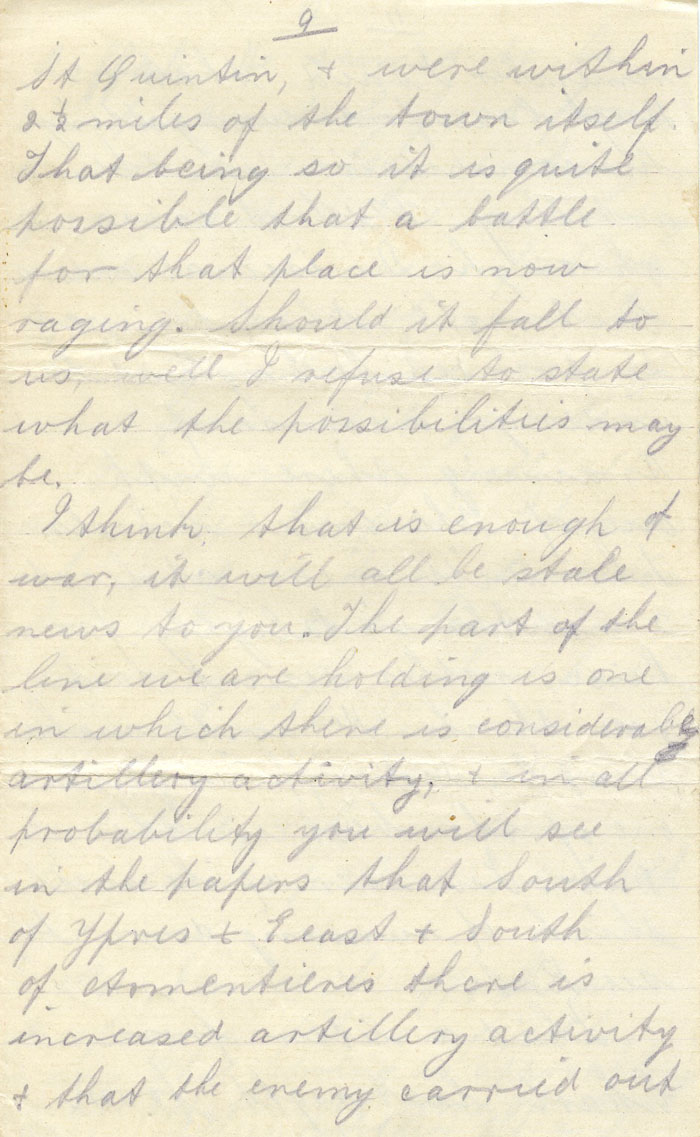 9
St Quintin, & were within
2½ miles of the town itself.
That being so it is quite
possible that a battle
for that place is now
raging. Should it fall to
us, well I refuse to state
what the possibilities may
be.
I think, that is enough of
war, it will all be stale
news to you. The part of the
line we are holding is one
in which there is considerable
artillery activity, & in all
probability you will see
in the papers that South
of Ypres & East & South
of Armentieres there is
increased artillery activity
& that the enemy carried out